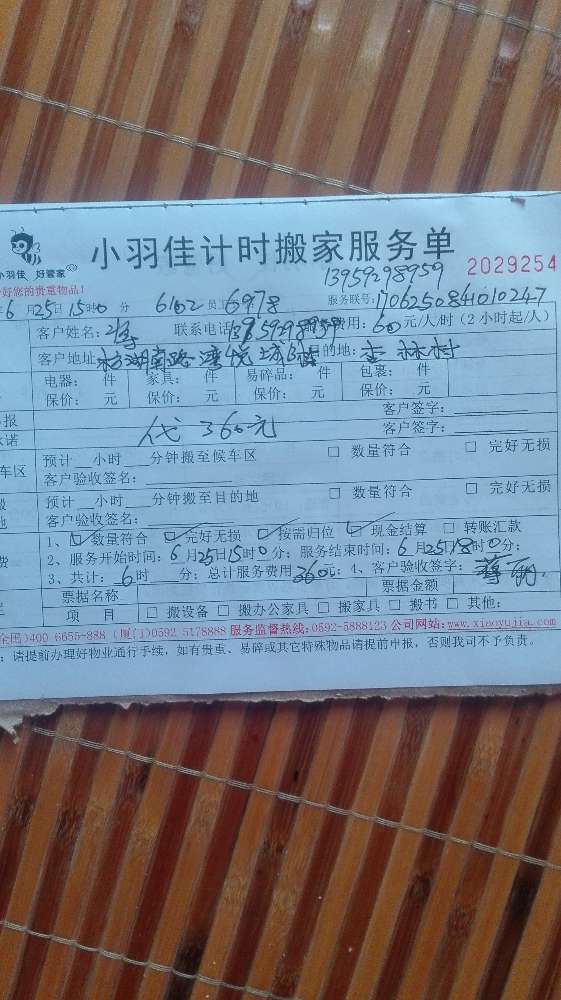 小羽佳计时搬家服务单
小羽佳 好管家
好您的贵重物品!
13959298959
2029254
6月25日15时0分 6102 员工6978 服务联号:1706250841010247
客户姓名: 联系电话 费用:60元/人/时(2小时起/人)
客户地址 湖南路 的地: 林村
电器: 件 家具: 件 易碎品: 件 包裹: 件
保价: 元 保价: 元 保价: 元 保价: 元
报
诺
代360元
客户签字:
客户签字:
车区
预计 小时 分钟搬至候车区 □ 数量符合 □ 完好无损
客户验收签名:
预计 小时 分钟搬至目的地 □ 数量符合 □ 完好无损
地
客户验收签名:
费
1、☑数量符合 ☑完好无损 ☑按需归位 ☑现金结算 □ 转账汇款
2、服务开始时间:6月25日15时0分;服务结束时间:6月25日18时0分;
3、共计:6时 分;总计服务费用360元;4、客户验收签字:
票据名称 票据金额
项 目 □ 搬设备 □ 搬办公家具 □ 搬家具 □ 搬书 □ 其他:
全国)400 6655-888 (厦门)0592 5178888 服务监督热线:0592-5888123 公司网站:www.xiaoyujia.com
:请提前办理好物业通行手续,如有贵重、易碎或其它特殊物品请提前申报,否则我司不予负责。